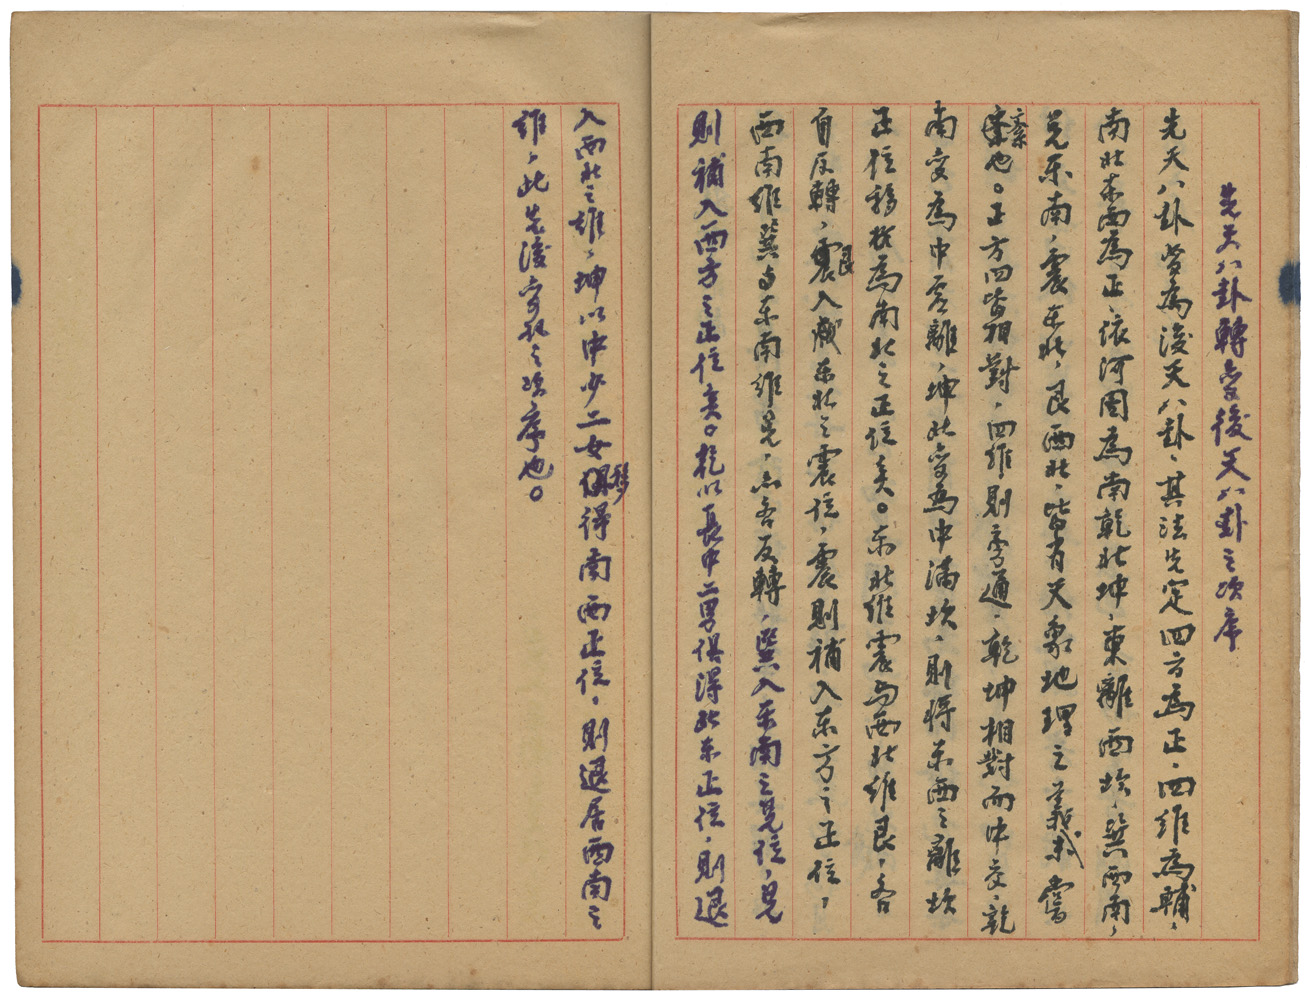 先天八卦轉變後天八卦之次序
先天八卦變為後天八卦、其法先定四方為正、四維為輔、
南北东西為正、依河图為南乾北坤、東離西坎、巽西南、
兑东南、震东北、艮西北、皆有天象地理之義、未嘗
紊也。正方四皆相對、四維則旁通、乾坤相對而中交、乾
南变為中虚離、坤北变為中滿坎、則將东西之離坎
正位移於為南北之正位矣。东北維震与西北維艮、各
自反轉、艮入成东北之震位、震則補入东方之正位、
西南維巽与东南維兑、亦各反轉、巽入东南之兑位、兑
則補入西方之正位矣。乾以長中二男俱得北东正位、則退
入西北之維、坤以中少二女移得南西正位、則退居西南之
維、此先後变化之次序也。